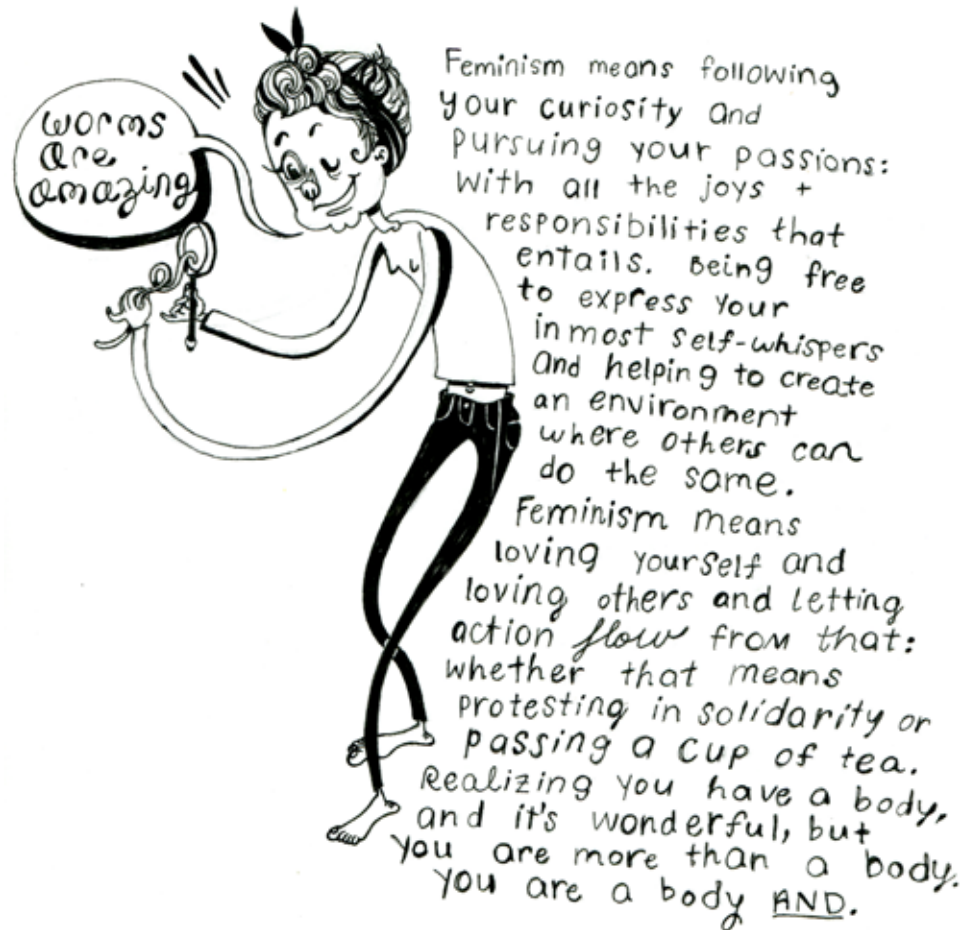 worms
are
amazing
Feminism means following
your curiosity and
pursuing your passions:
with all the joys +
responsibilities that
entails. Being free
to express your
inmost self-whispers
and helping to create
an environment
where others can
do the same.
Feminism means
loving yourself and
loving others and letting
action flow from that:
whether that means
protesting in solidarity or
passing a cup of tea.
Realizing you have a body,
and it's wonderful, but
you are more than a body.
you are a body AND.